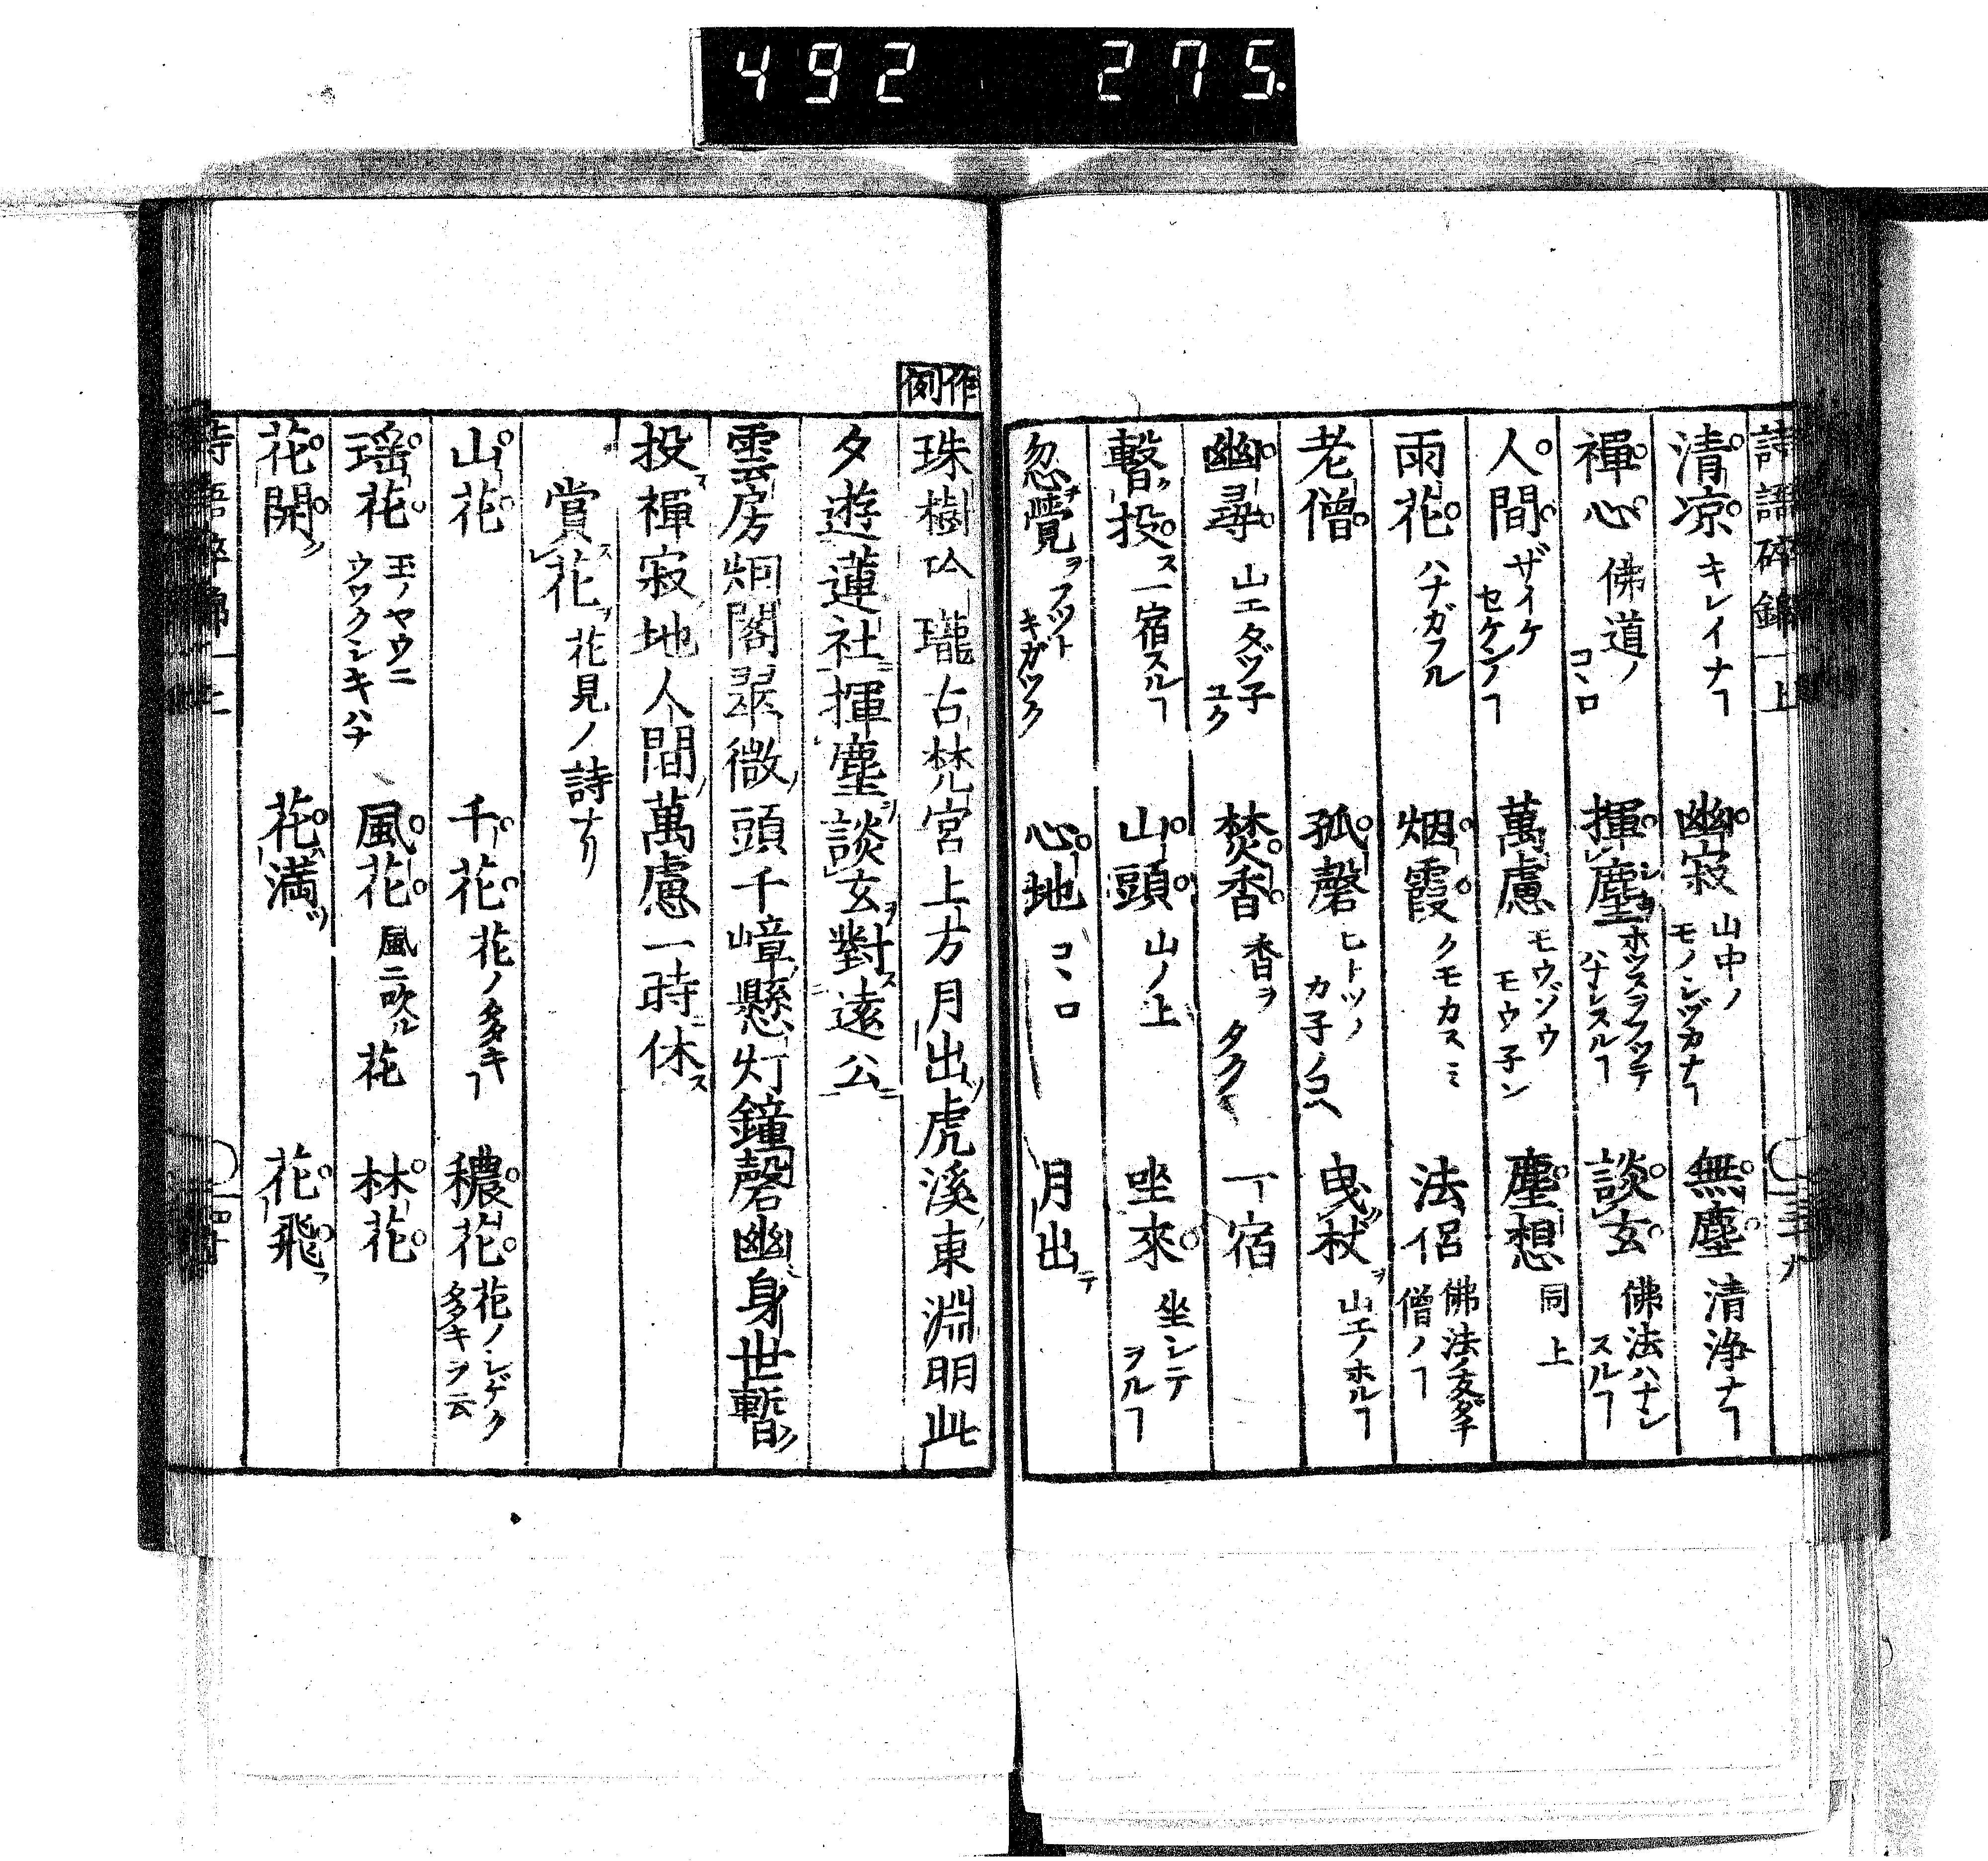 492 275.
詩語碎錦一上
清凉 キレイナヿ 幽寂 山中ノモノシヅカナヿ 無塵 清浄ナヿ
禅心 佛道ノコヽロ 揮塵 ホツスヲフツテハナシスルヿ 談玄 佛法ハナシスルヿ
人間 ザイケセケンノヿ 萬慮 モウゾウモウ子ン 塵想 同上
雨花 ハナガフル 烟霞 クモカスミ 法侶 佛法ノ友ダチ僧ノヿ
老僧 孤磬 ヒトツノカ子ノコヘ 曳杖 山エノホルヿ
幽尋 山エタヅ子ユク 焚香 香ヲタク 一宿
暫投 一宿スルヿ 山頭 山ノ上 坐來 坐シテヲルヿ
忽覺 フツトキガツク 心地 コヽロ 月出テ
作例
珠樹玲瓏古梵宮上方月出虎溪東淵明此
夕遊蓮社揮塵談玄對遠公
雲房烟閣翠微頭千嶂懸灯鐘磬幽身世暫
投禅寂地人間萬慮一時休
賞花 花見ノ詩ナリ
山花 千花 花ノ多キヿ 穠花 花ノシゲク多キヲ云
瑶花 玉ノヤウニウツクシキハナ 風花 風ニ吹ル花 林花
花開ク 花満ツ 花飛フ
詩語碎錦一上